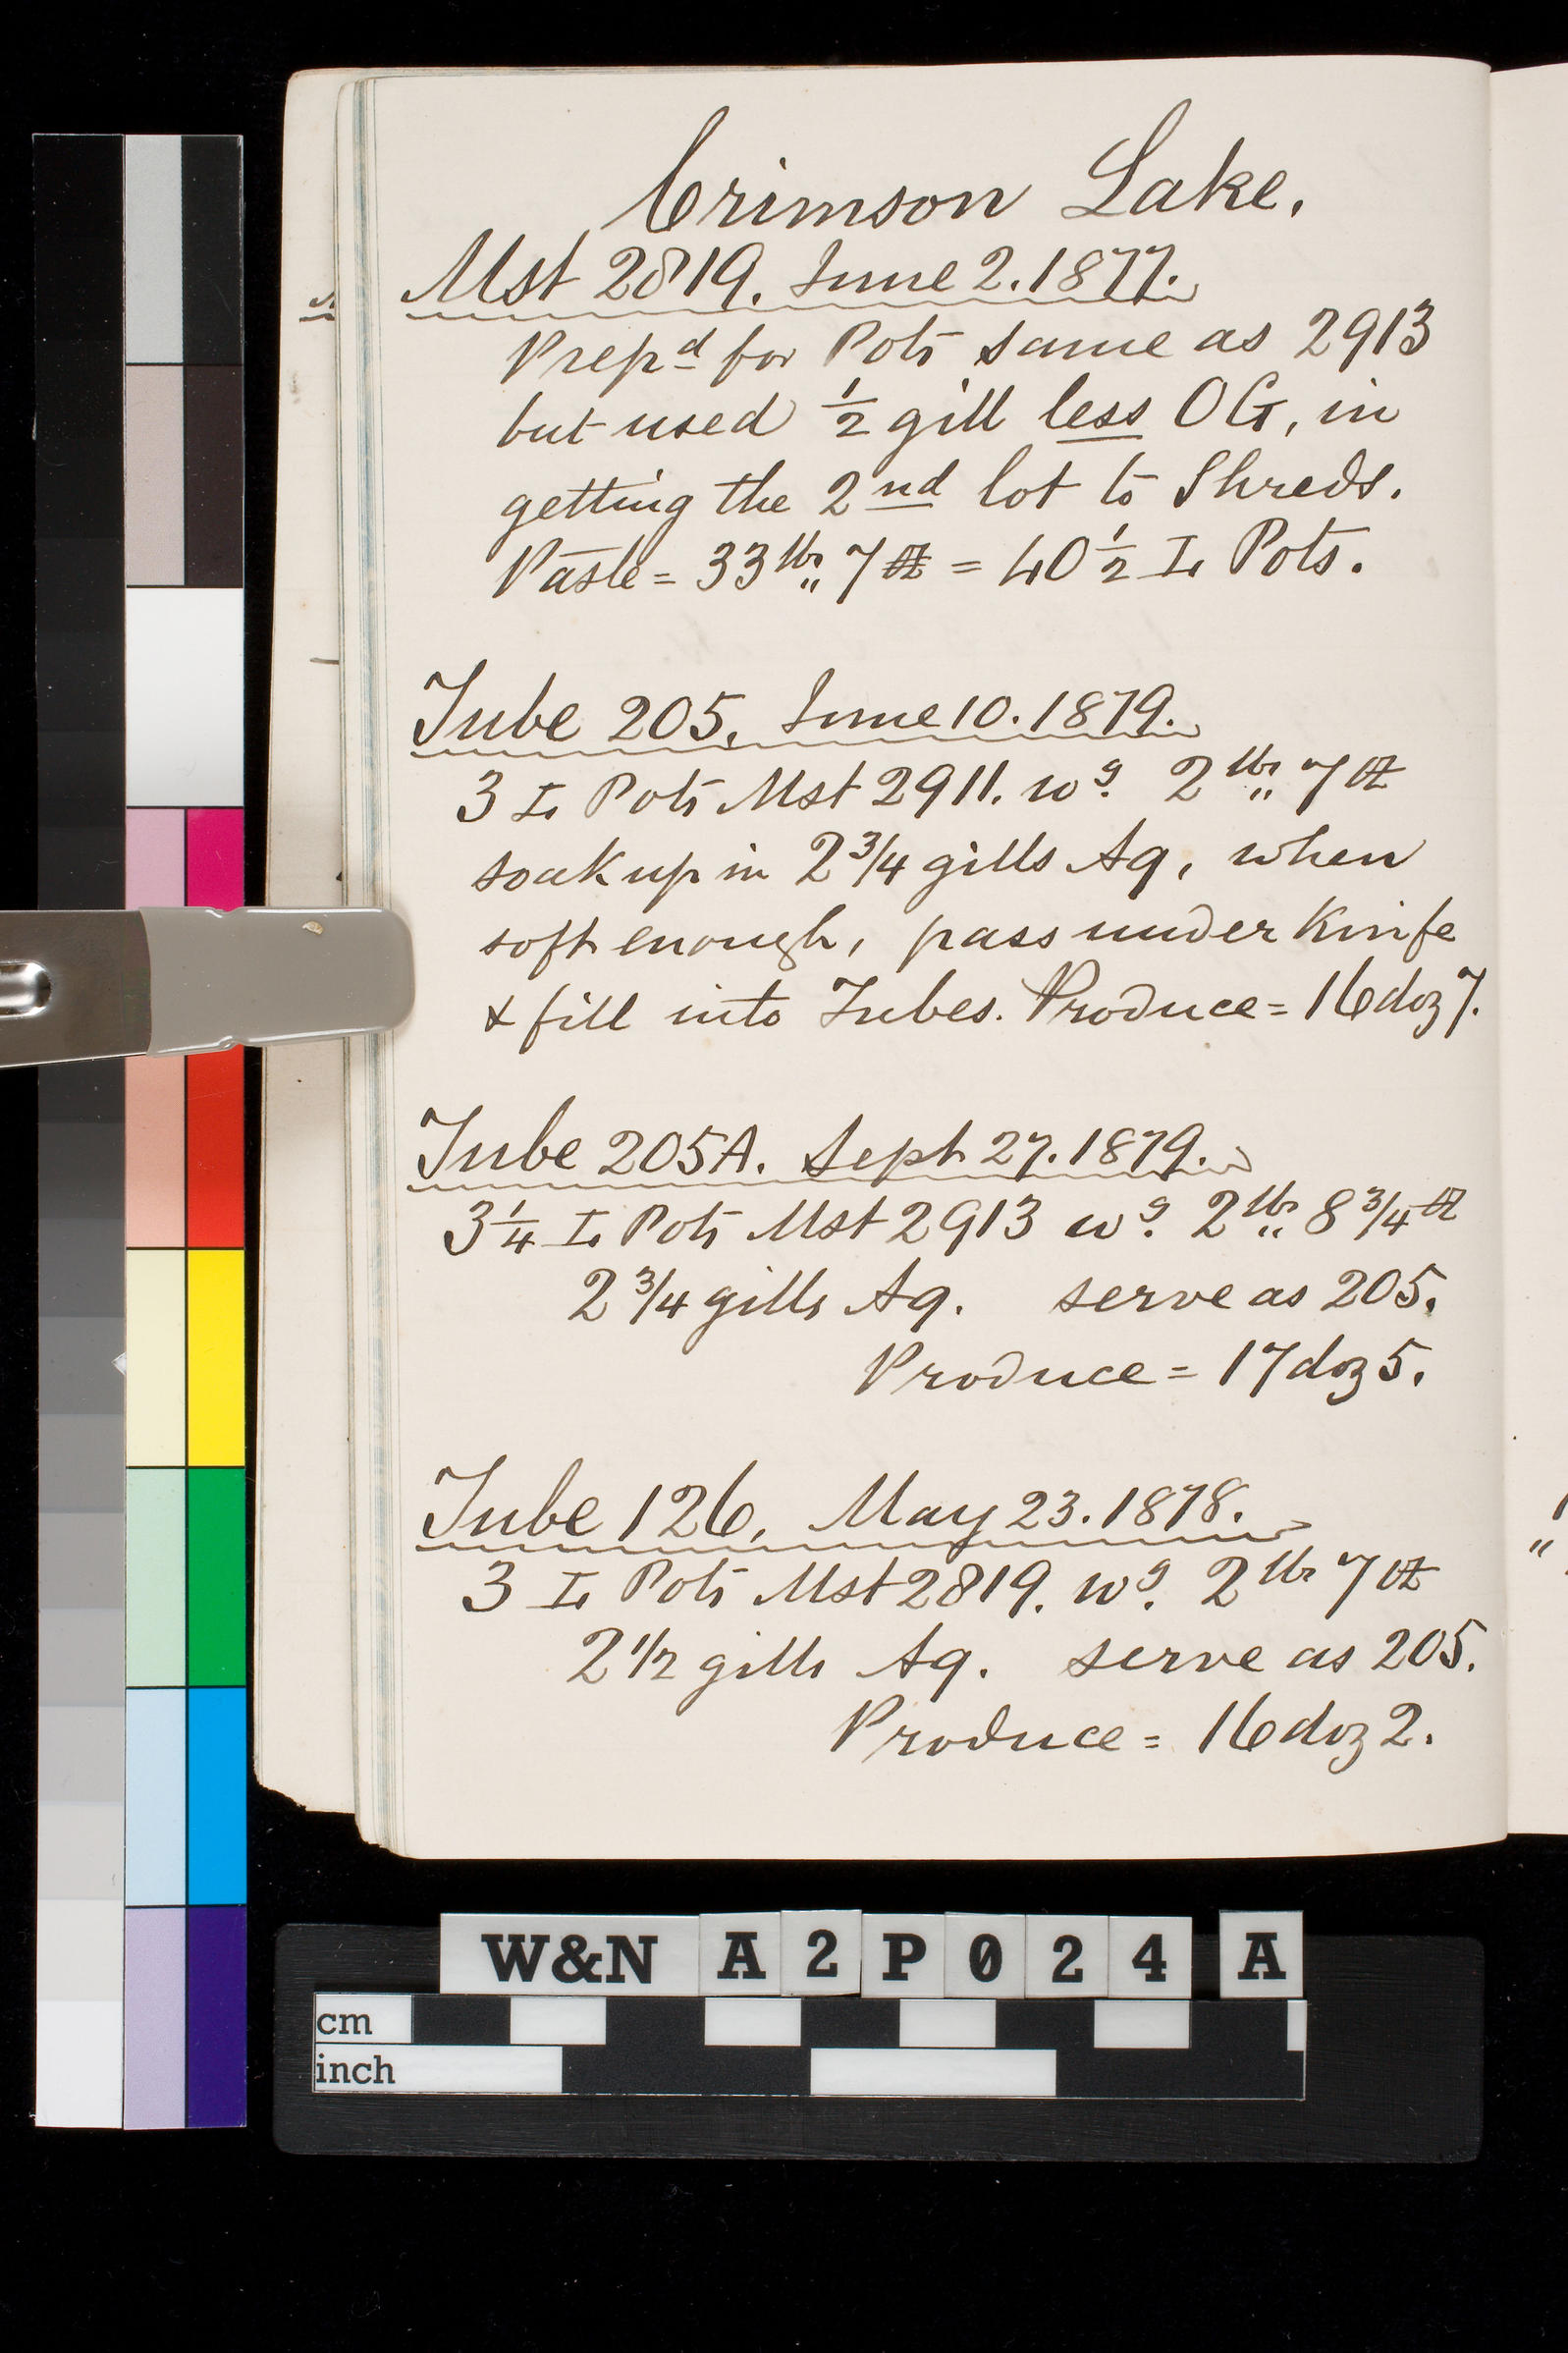 Crimson Lake.
Mst 2819. June 2. 1877.
Prepd for Pots same as 2913
but used 1/2 gill less OG, in
getting the 2nd lot to Shreds.
Paste = 33 lbs,, 7 oz = 40 1/2 L Pots.
Tube 205. June 10. 1879.
3 L Pots Mst 2911. wg. 2 lbs,, 7 oz
soak up in 2 3/4 gills Aq, when
soft enough, pass under Knife
& fill into Tubes. Produce = 16 doz 7.
Tube 205A. Sept 27. 1879.
3 1/4 L Pots Mst 2913 wg. 2 lbs,, 8 3/4 oz
2 3/4 gills Aq. serve as 205.
Produce = 17 doz 5.
Tube 126. May 23. 1878.
3 L Pots Mst 2819. wg. 2 lbs 7 oz
2 1/2 gills Aq. serve as 205.
Produce = 16 doz 2.
W&N A2P024 A
cm
inch